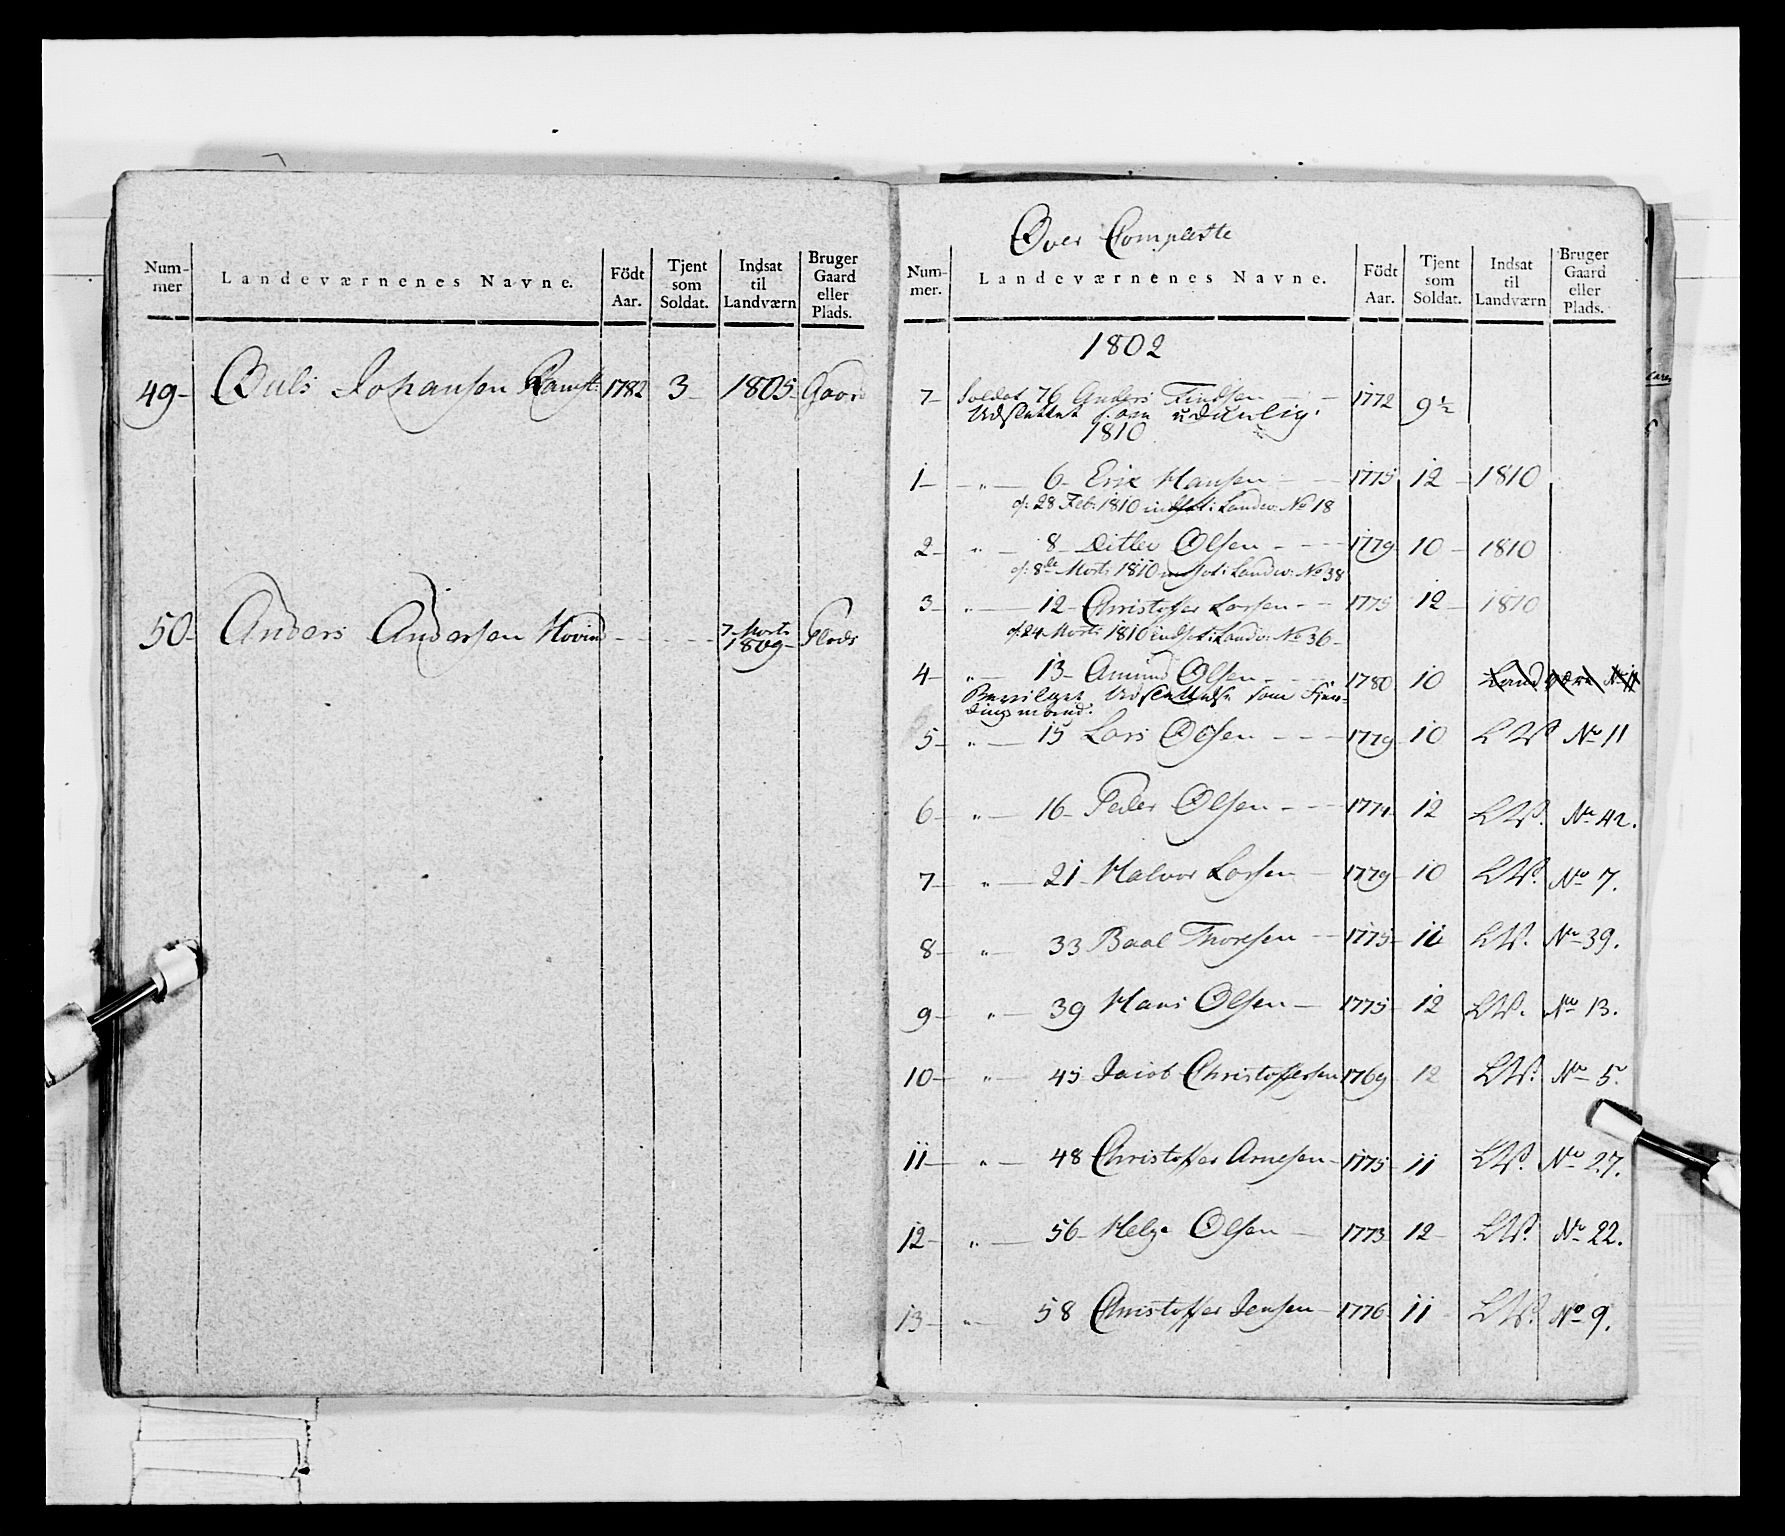 Num-
mer
Landeværnenes Navne.
Födt
Aar.
Tjent
som
Soldat.
Indsat
til
Landværn
Bruger
Gaard
eller
Plads.
49- Ouls Johansen 1782 3- 1805- Gaard
50- Anders Andersen Hovind - - - 7 Marts 1809- Plads
Over Complette
Num-
mer.
Landeværnenes Navne.
Födt
Aar.
Tjent
som
Soldat.
Indsat
til
Landværn
Bruger
Gaard
eller
Plads.
1802
7- Soldat 76 Anders Findsen - 1772 9½
Udslettet udienlig.
1810
1- " - 6- Erik Hansen - - 1775 12 - 1810
d: 28 Feb: 1810 indsat: Landv: No 18
2- " - 8- Ditlev Olsen - - - 1779 10 - 1810
d: 8de Marts 1810 indsat: Landv: No 38
3- " - 12- Christoffer Larsen - - 1775 12 - 1810
d: 24 Marts 1810 indsat: Landv: No 36-
4- " - 13- Amund Olsen - - - 1780 10 Landværn No 11
Bevilget Udslettelse som
dingsmand.
5- " - 15 Lars Olsen - - - 1779 10 LW No 11
6- " - 16- Peder Olsen - - - 1774 12 LW. No 42.
7- " - 21- Halvor Larsen - 1779 10 LW. No 7.
8- " - 33 Baal Thoresen - - 1775- 11 LW. No 39.
9- " - 39 Hans Olsen - 1775- 12 LW. No 13.
10- " - 45 Jacob Christoffersen 1769 12 LW. No 5.
11- " - 48 Christoffer Arnesen - 1775 11 LW. No 27.
12- " - 56- Helge Olsen - 1773 12- LW. No 22.
13- " - 58 Christoffer Jensen - 1776 11 LW. No 9.